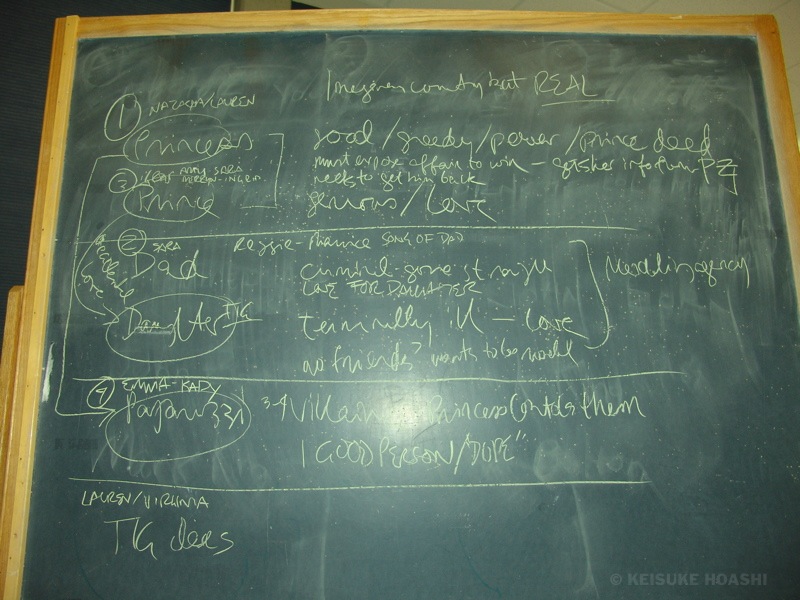 Imaginary country but REAL
① NATASHA/LAUREN
Princess good/greedy/power/prince deed
must expose affair to win – gets her info from PZJ
needs to get him back
③ AMY SARA
Prince generous/love
② SARA Reggie – SONG OF DAD
Dad criminal gone straight Modeling agency
LOVE FOR DAUGHTER
Daughter TIG terminally ill – love
no friends? wants to be model
④ EMMA – KADY
3-4 Villains Princess Contacts them
1 GOOD PERSON/"DOPE"
LAUREN/VIRGINIA
TIG dies
© KEISUKE HOASHI